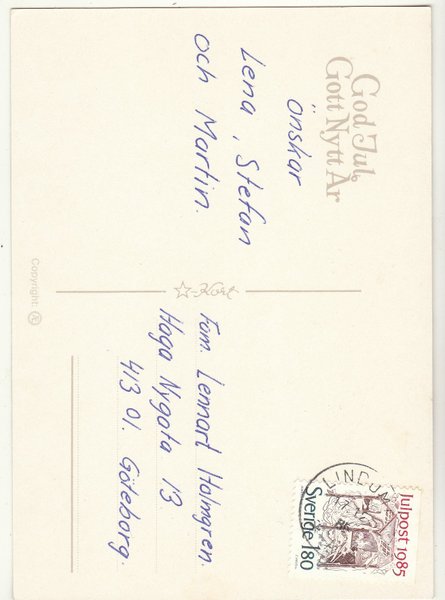 God Jul
Gott Nytt År
önskar
Lena, Stefan
och Martin.
Copyright: Æ
Kort
Fam. Lennart Holmgren.
Haga Nygata 13
413 01. Göteborg.
LINDOME
Julpost 1985
Sverige 180